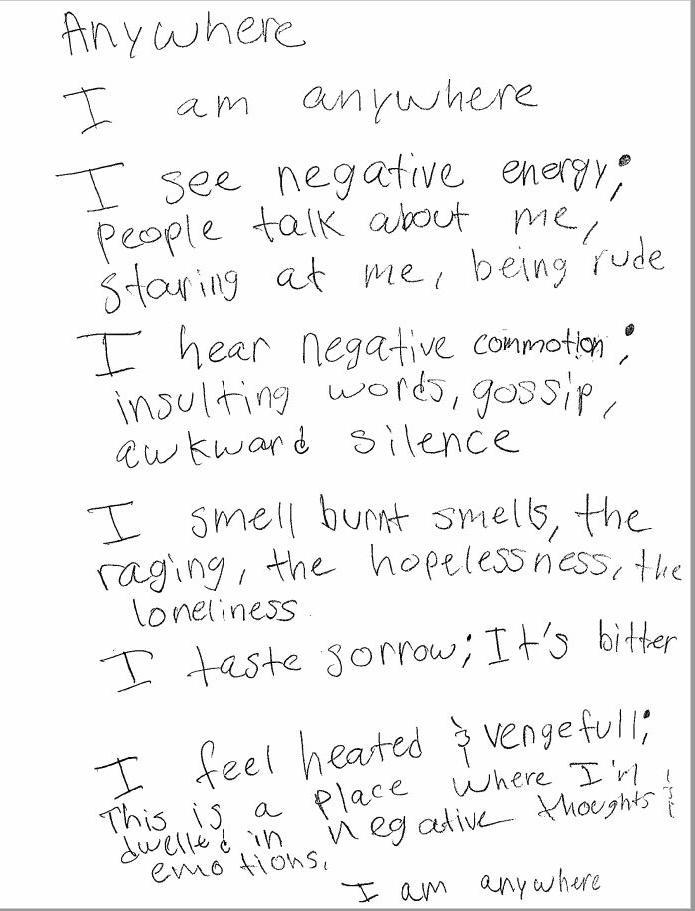 Anywhere
I am anywhere
I see negative energy;
people talk about me,
staring at me, being rude
I hear negative commotion;
insulting words, gossip,
awkward silence
I smell burnt smells, the
raging, the hopelessness, the
loneliness
I taste sorrow; It's bitter
I feel heated & vengefull;
This is a place where I'm
dwelled in negative thoughts &
emotions.
I am anywhere